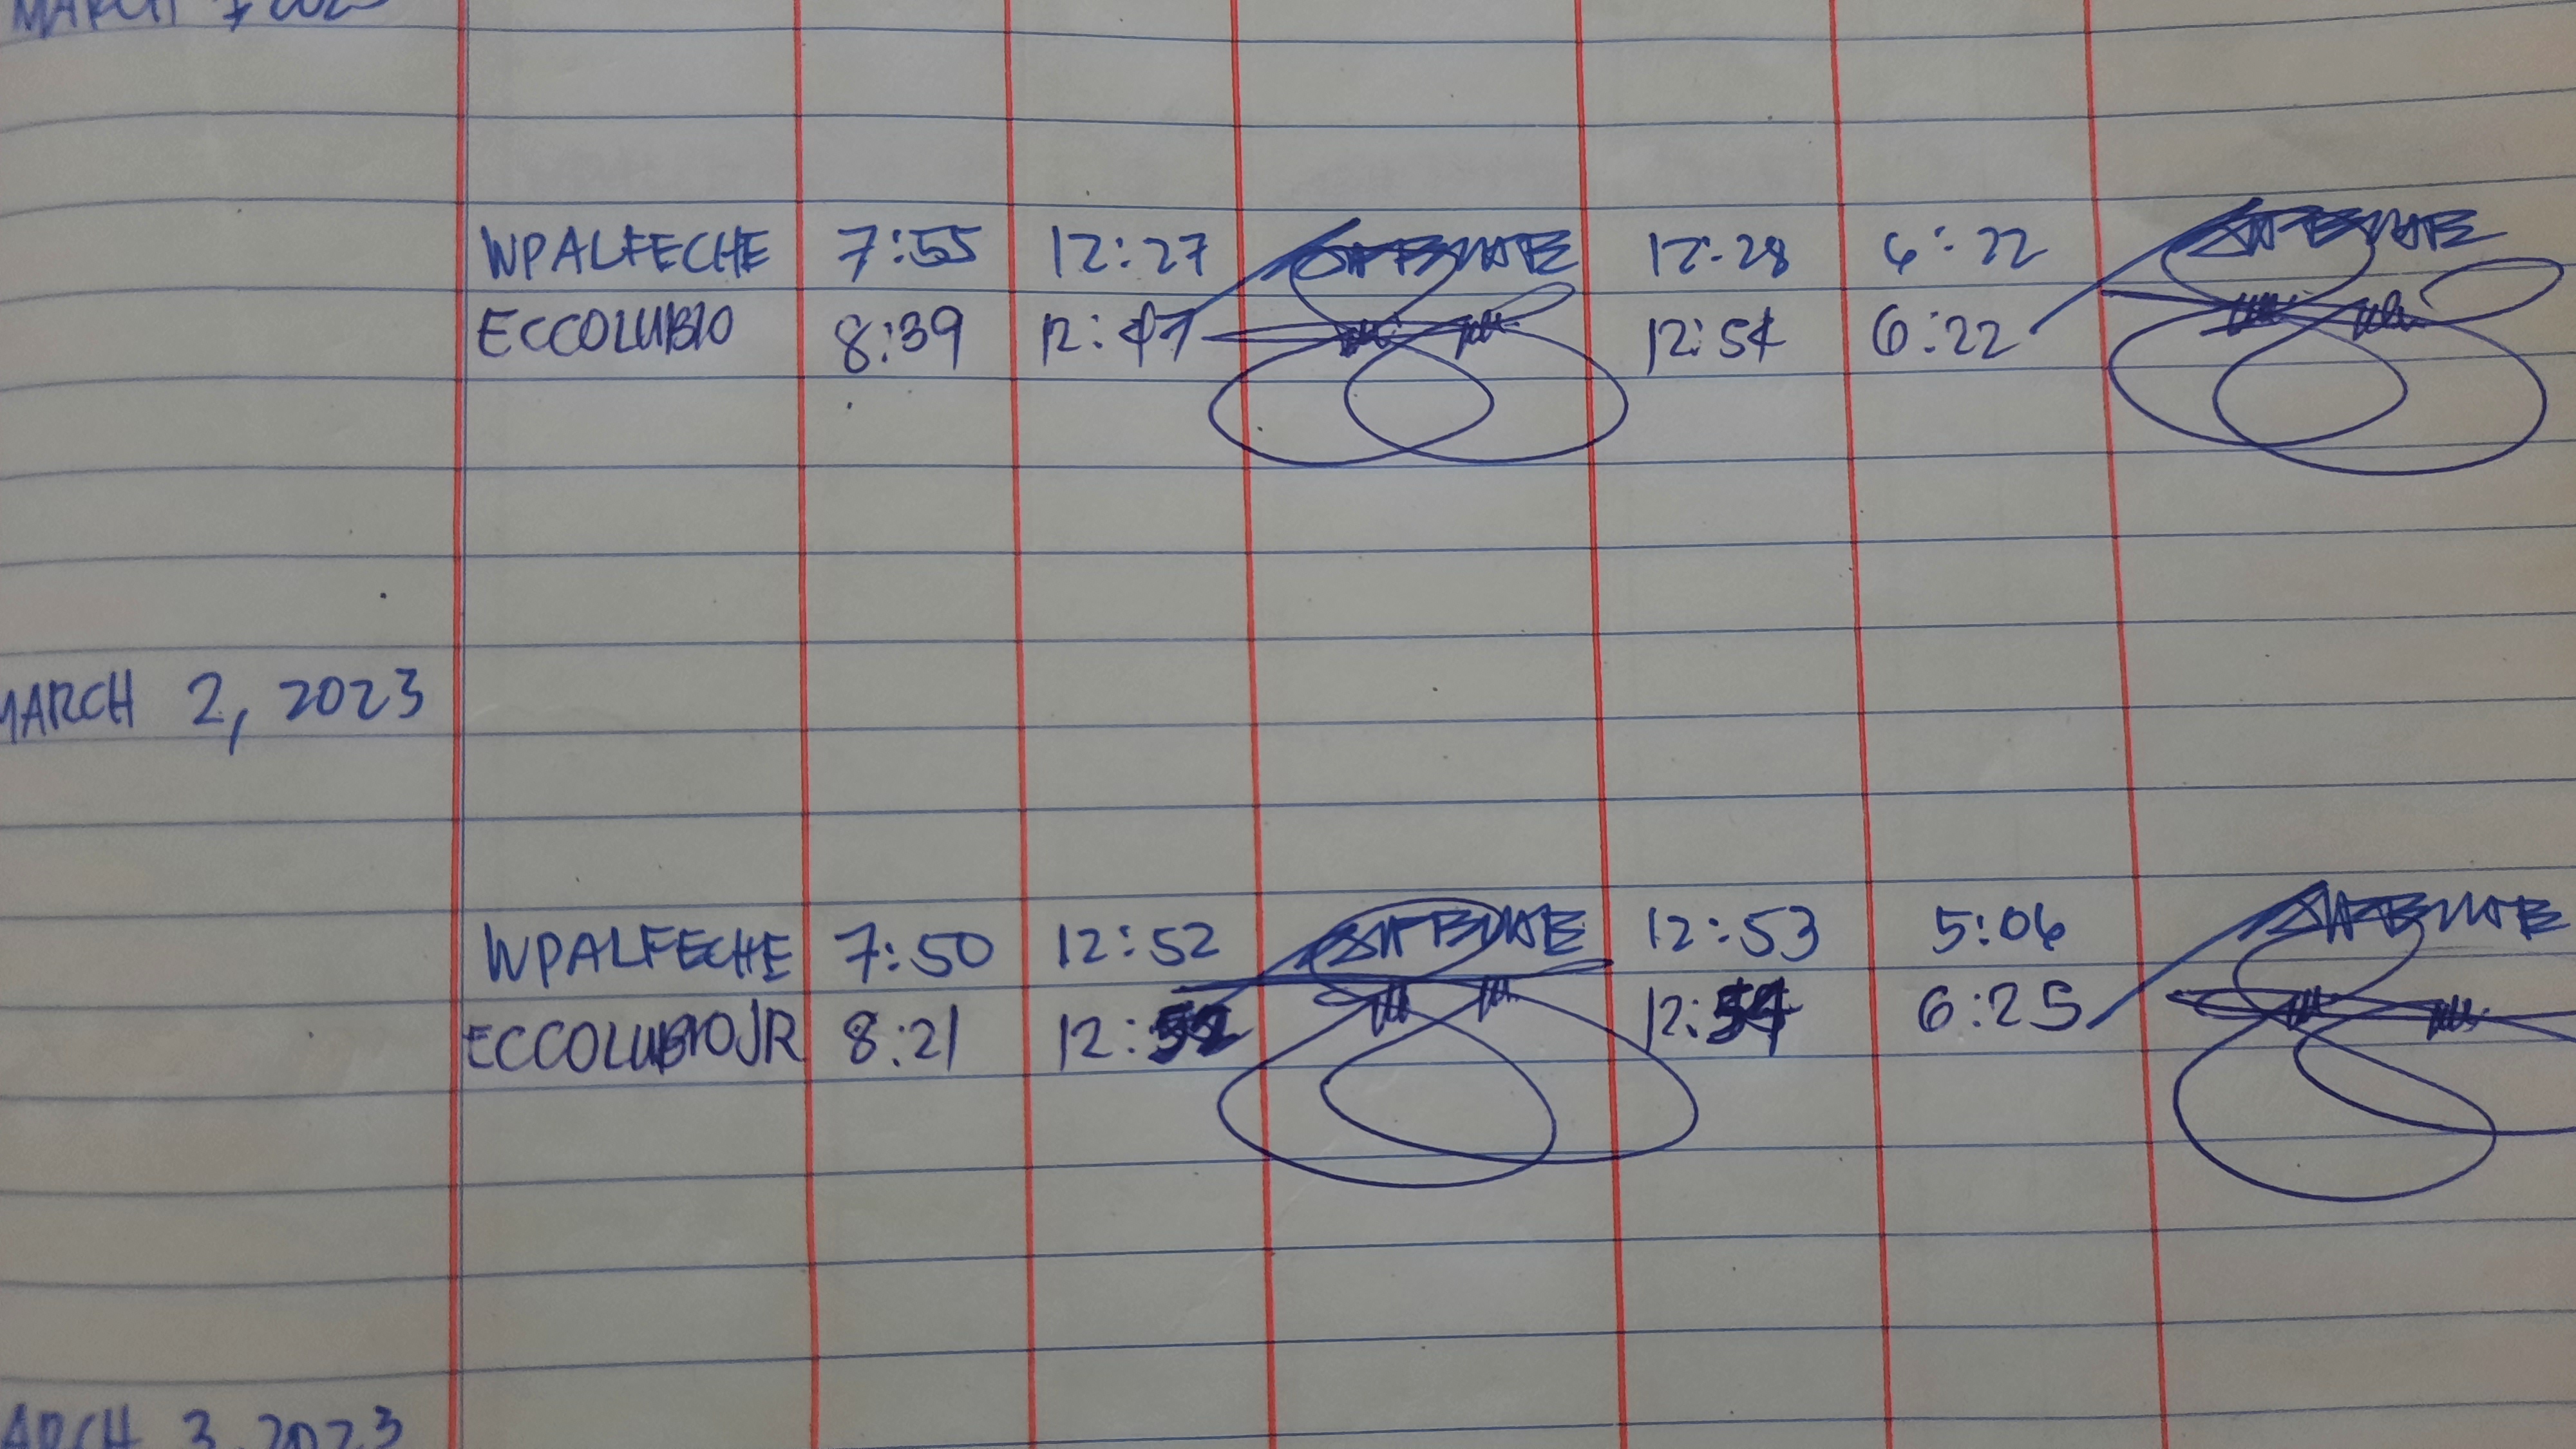 MARCH 1, 2023
WPALFECHE 7:55 12:27 12:28 6:22
ECCOLUBIO 8:39 12:47 12:54 6:22
MARCH 2, 2023
WPALFECHE 7:50 12:52 12:53 5:06
ECCOLUBIOJR 8:21 12:52 12:54 6:25
MARCH 3, 2023